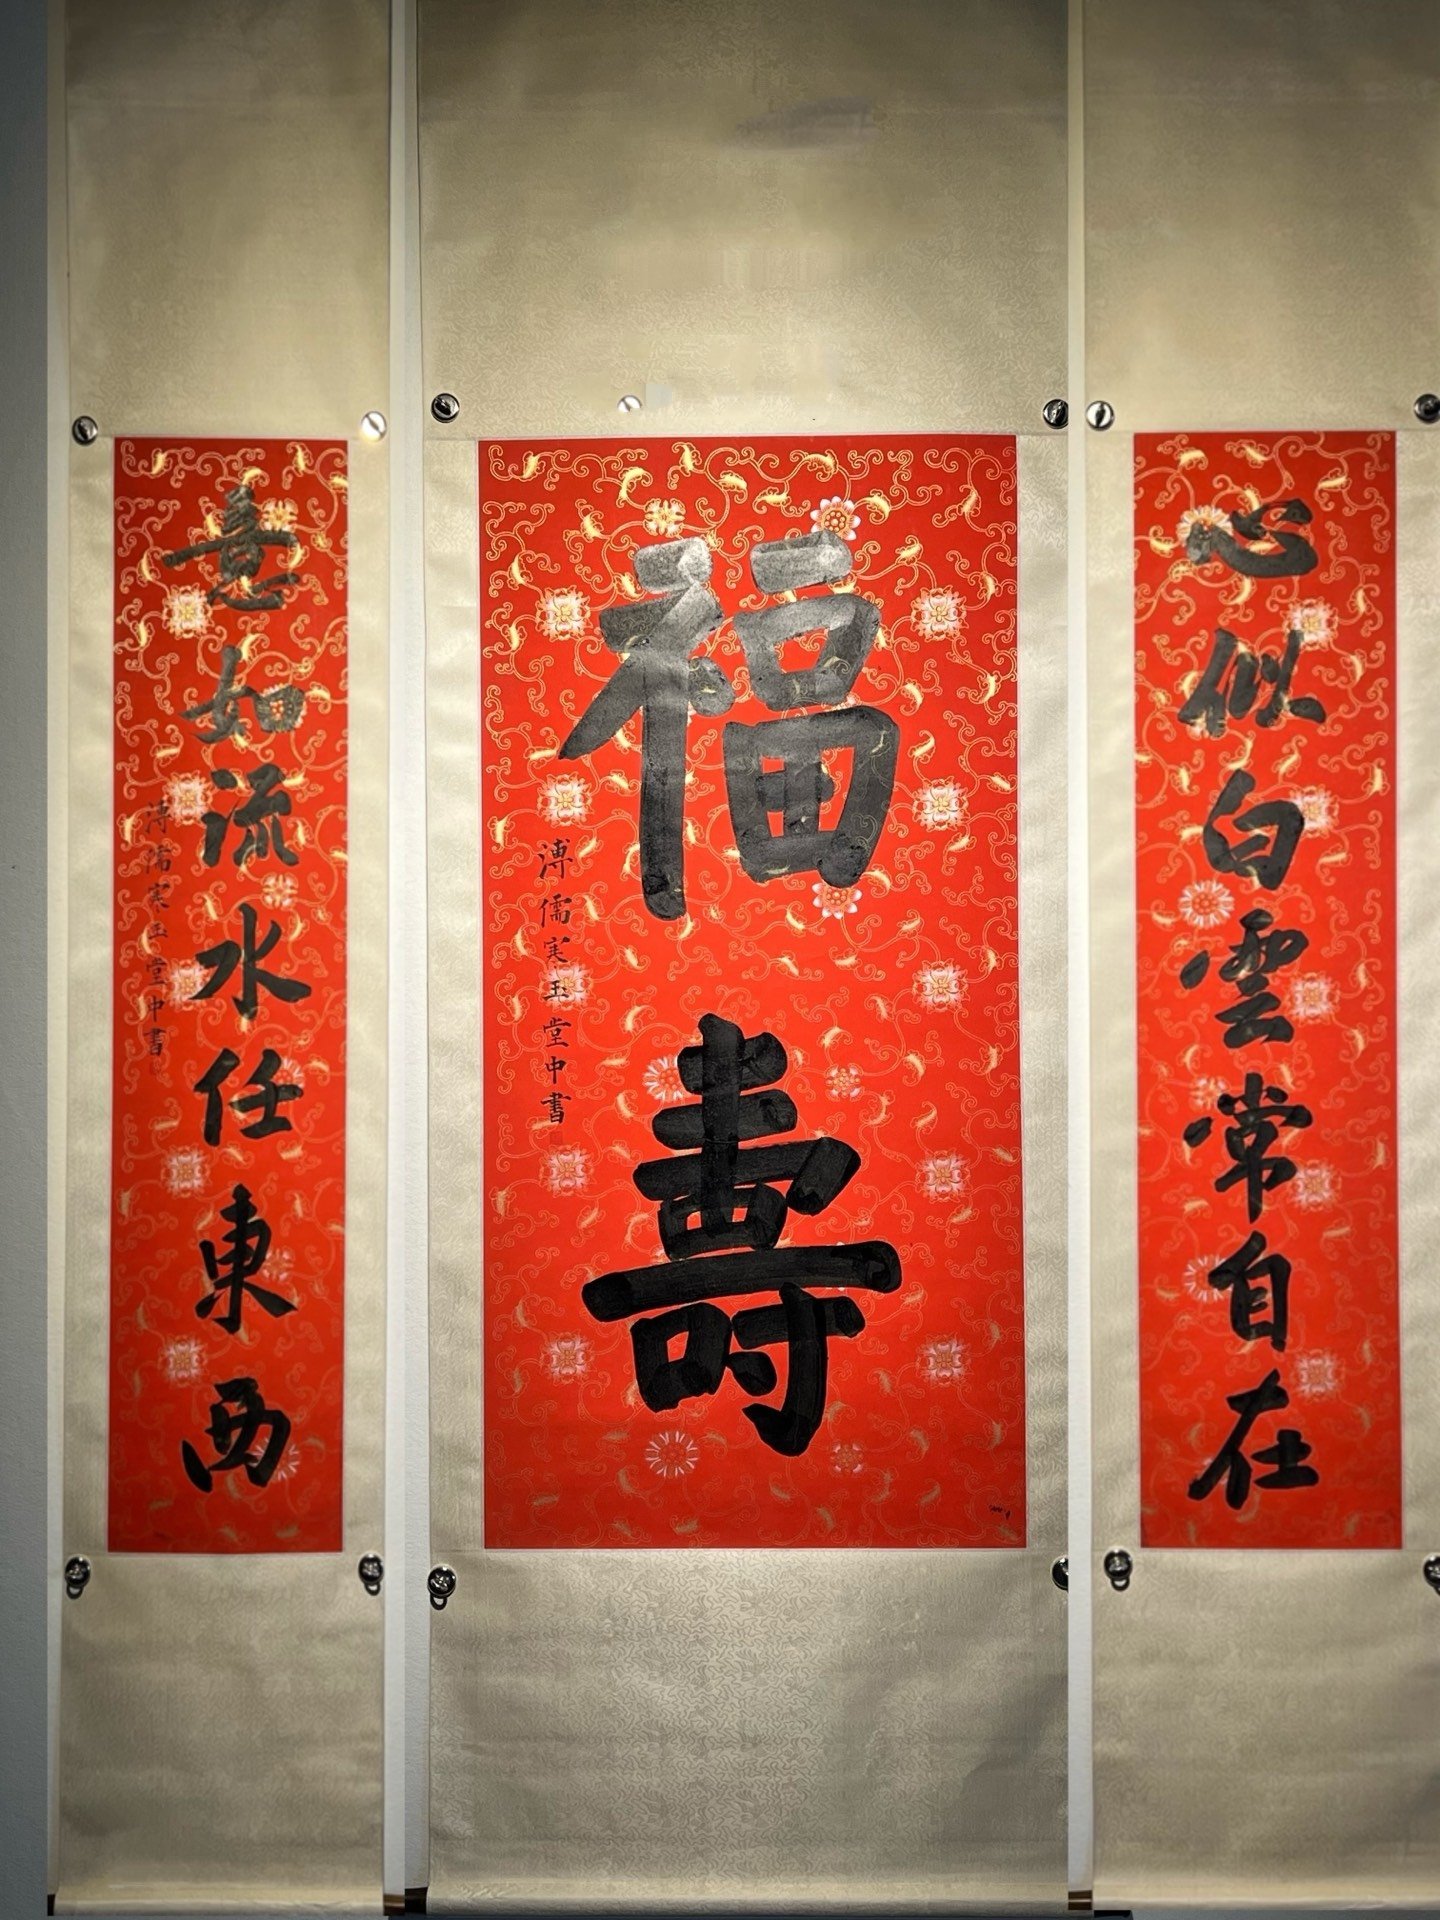 心似白雲常自在
福壽
溥儒寒玉堂中書
意如流水任東西
溥儒寒玉堂中書